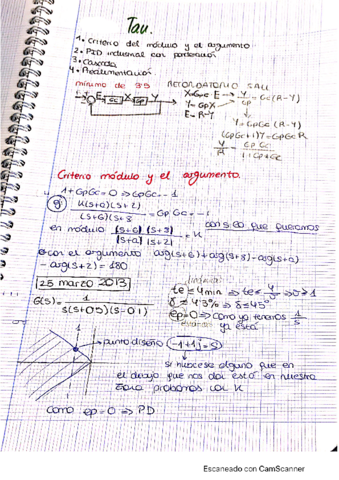 Tau.
1. Criterio del módulo y el argumento
2. PID industrial con
3. Cascada
4. Prealimentación
RECORDATORIO SAU
E Gc Gp Y
X=Gc·E → Y/Gp = Gc(R-Y)
Y=GpX
E=R-Y
Y=GpGc(R-Y)
(GpGc+1)Y=GpGcR
Y/R = GpGc/1+GpGc
Criterio módulo y el argumento.
1+GpGc=0 ⇒ GpGc=-1
K(s+a)(s+2)/(s+6)(s+8 = GpGc=-1
en módulo (s+6)(s+8)/(s+a)(s+2) = K
con el s que queramos
con el argumento arg(s+6)+arg(s+8)-arg(s+a)
-arg(s+2)=180
25 marzo 2013
G(s)= 1/s(s+0'5)(s-0'1)
te≤4min ⇒ te≤
γ≤4'3% ⇒ γ≤45°
ep=0 ⇒ como ya tenemos 1/s
ya está
punto diseño (-1+1j=s)
Si hubiese alguno que en
el dibujo que nos da está en nuestra
zona probamos con K
como ep=0 ⇒ PD
Escaneado con CamScanner